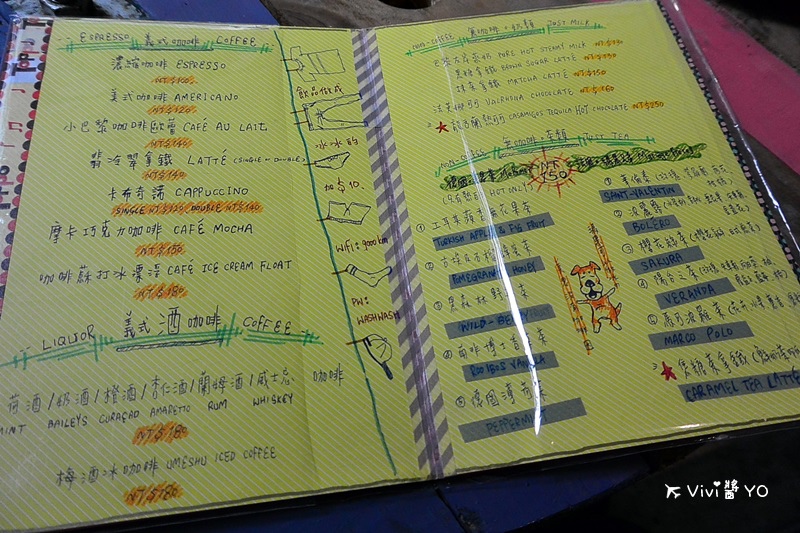 ESPRESSO 義式咖啡 COFFEE
濃縮咖啡 ESPRESSO
NT$100
美式咖啡 AMERICANO
NT$120
小巴黎咖啡歐蕾 CAFÉ AU LAIT
NT$140
翡冷翠拿鐵 LATTÉ (SINGLE • DOUBLE)
NT$140
卡布奇諾 CAPPUCCINO
SINGLE NT$120 DOUBLE NT$140
摩卡巧克力咖啡 CAFÉ MOCHA
NT$150
咖啡蘇打冰漂浮 CAFÉ ICE CREAM FLOAT
NT$180
LIQUOR 義式酒咖啡 COFFEE
荷酒/奶酒/橙酒/杏仁酒/蘭姆酒/威士忌 咖啡
MINT BAILEYS CURAÇAO AMARETTO RUM WHISKEY
NT$180
梅酒冰咖啡 UMESHU ICED COFFEE
NT$180
飲品做成
冰冰的
加$10
WiFi: 9000km
PW:
WASHWASH
NON-COFFEE JUST MILK
PURE HOT STEAMY MILK
黑糖拿鐵 BROWN SUGAR LATTÉ NT$150
抹茶拿鐵 MATCHA LATTÉ NT$150
VALRHONA CHOCOLATE NT$160
CASAMIGOS TEQUILA HOT CHOCOLATE NT$250
NON-COFFEE 無咖啡•茶類 JUST TEA
POT 150
(只有熱飲 HOT ONLY)
① 土耳其蘋果無花果茶
TURKISH APPLE & FIG FRUIT
②
POMEGRANATE HONEY
③ 黑森林野莓茶
WILD-BERRY
④ 南非博士香草茶
ROOIBOS VANILLA
⑤ 德國薄荷茶
PEPPERMINT
①
SAINT-VALENTIN
② 波麗露
BOLÉRO
③ 櫻花綠茶
SAKURA
④ 陽台之茶
VERANDA
⑤ 馬可波羅茶
MARCO POLO
焦糖茶拿鐵
CARAMEL TEA LATTÉ
Vivi醬 YO